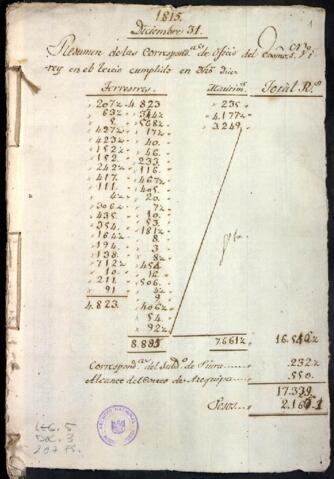 1815.
Diciembre 31.
Resumen de las Correspond.as de Oficio del Exmo. S.or Vi-
rey en el tercio cumplido en dho dia
Terrestres. Maritim.s Total R.s
207½ 4.823 235
692 344½ 4.177½
5 568½ 3.249
427½ 17½
423½ 40
152 46
152 233
242½ 116
417 467½
111 405
4½ 20
306½ 7½
435 10
354 53
164½ 181½
194 8
138 3
712½ 8
10 454
211 16
91 506
4.823 406½
54
92½
8.885 7.661½ 16.546½
Correspond.as del Subd.o de Piura 232½
Alcance del Correo de Arequipa 550
17.339
Pesos 2.167
Leg. 5
Doc. 3